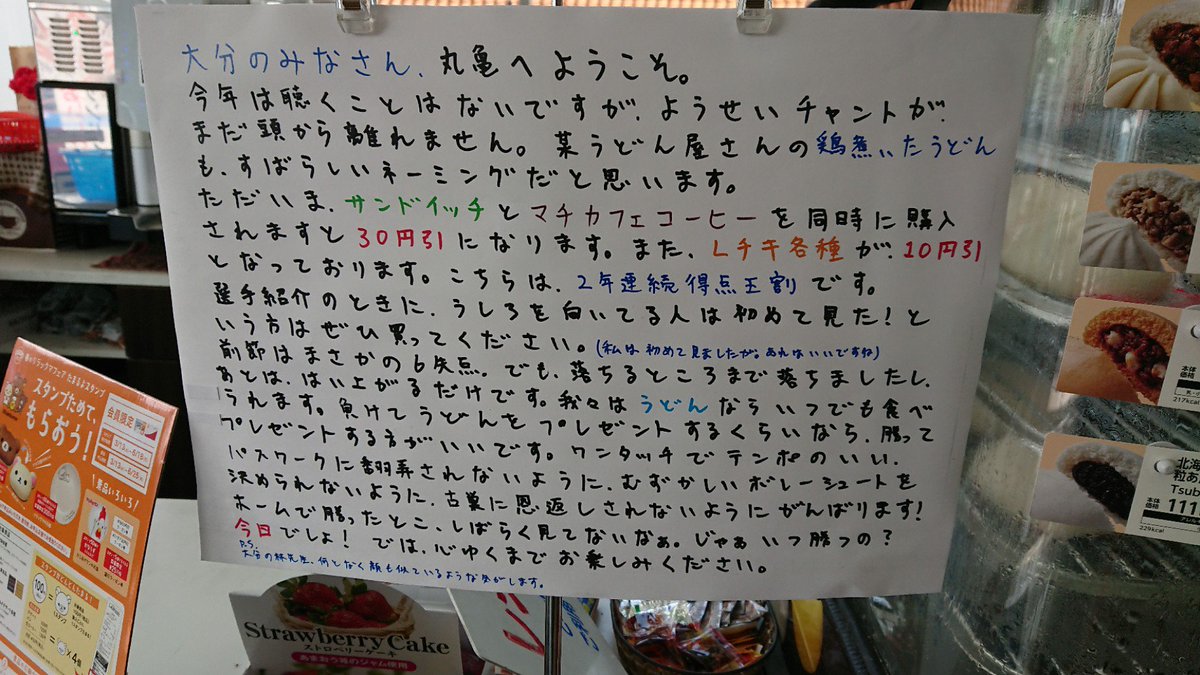 大分のみなさん、丸亀へようこそ。
今年は聴くことはないですが、ようせいチャントが、
まだ頭から離れません。某うどん屋さんの鶏煮いたうどん
も、すばらしいネーミングだと思います。
ただいま、サンドイッチとマチカフェコーヒーを同時に購入
されますと30円引になります。また、Lチキ各種が、10円引
となっております。こちらは、2年連続得点王割です。
選手紹介のときに、うしろを向いてる人は初めて見た!と
いう方はぜひ買ってください。(私は初めて見ましたが、あれはいいですね)
前節はまさかの6失点。でも、落ちるところまで落ちましたし、
あとは、はい上がるだけです。我々はうどんならいつでも食べ
られます。負けてうどんをプレゼントするくらいなら、勝って
プレゼントする方がいいです。ワンタッチでテンポのいい、
パスワークに翻弄されないように、むずかしいボレーシュートを
決められないように、古巣に恩返しされないようにがんばります!
ホームで勝ったとこ、しばらく見てないなぁ。じゃぁいつ勝つの?
今日でしょ! では、心ゆくまでお楽しみください。
P.S.
大分の林先生、何となく顔も似ているような気がします。
春のリラックマフェア たまるよスタンプ
スタンプためて、
もらおう!
会員限定
景品いろいろ!
Strawberry Cake
ストロベリーケーキ
あまおう苺のジャム使用
本体
価格
217kcal
北海
粒あ
Tsub
本体
価格
111
229kcal